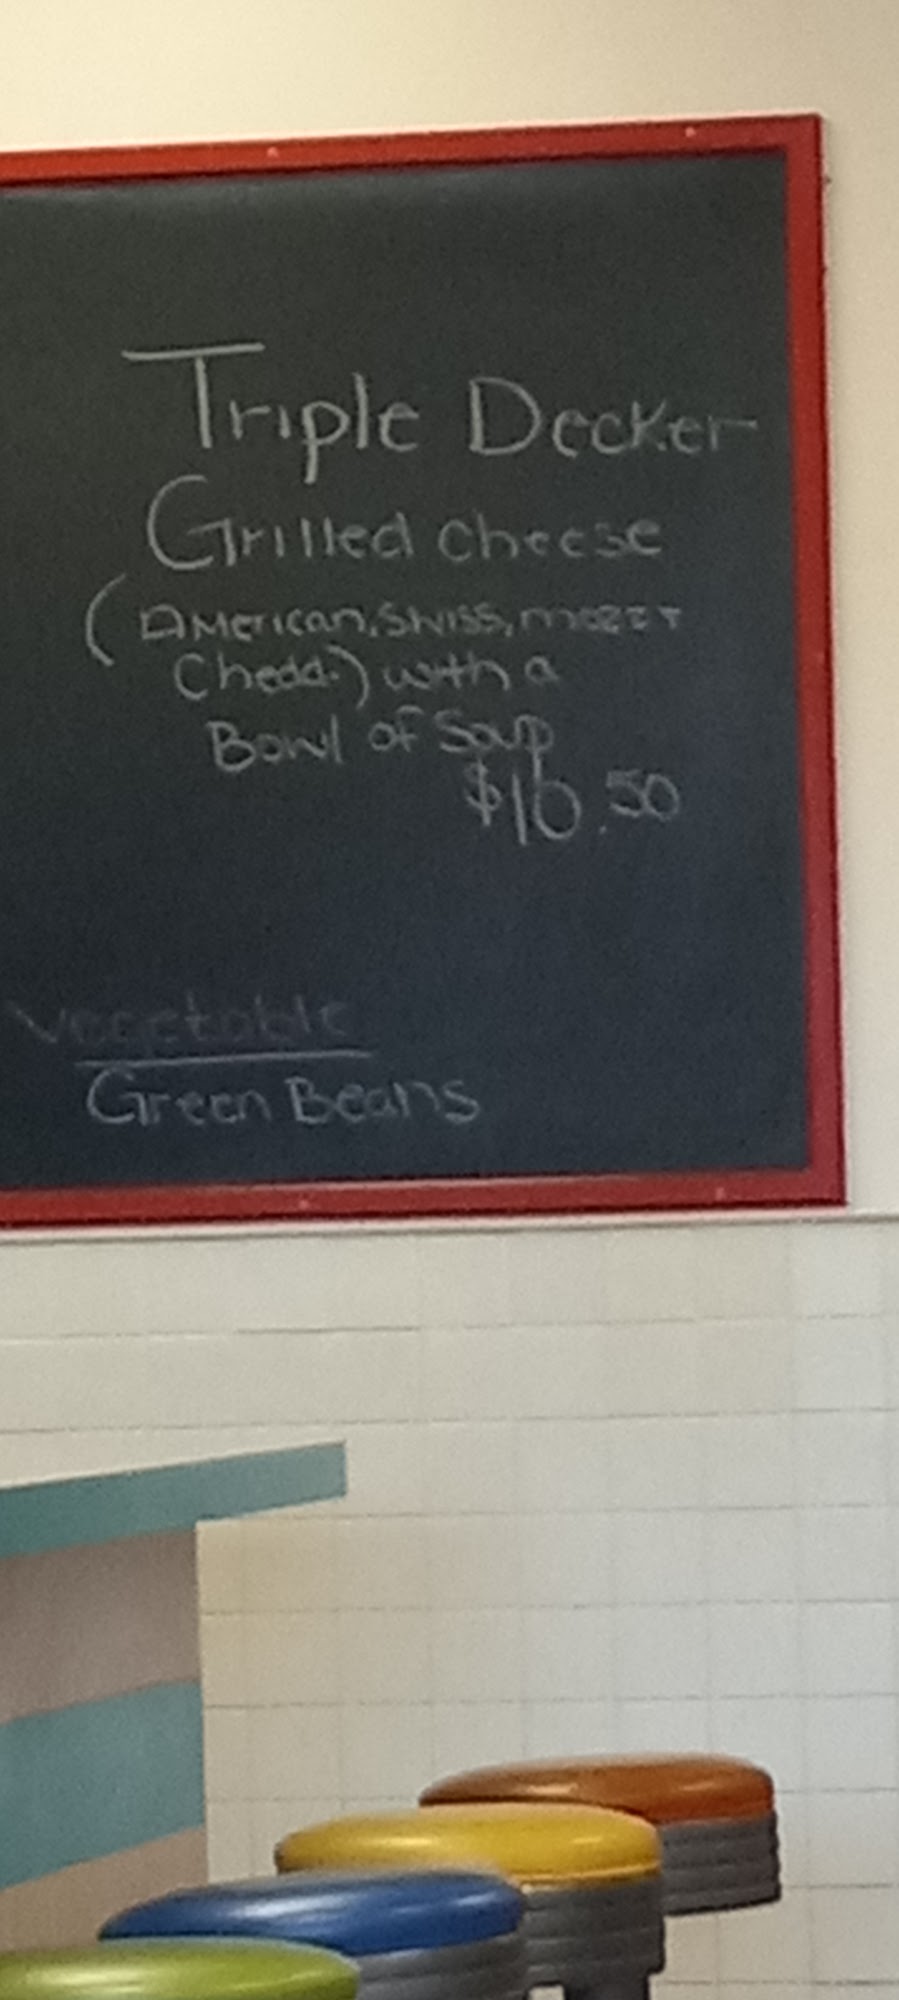 Triple Decker
Grilled cheese
(American, Swiss, mozz +
Chedd.) with a
Bowl of Soup
$10.50
Vegetable
Green Beans